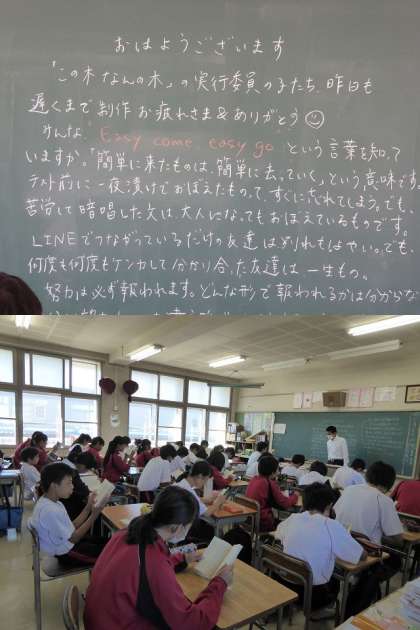 おはようございます
「この木なんの木」の実行委員の子たち、昨日も
遅くまで制作お疲れさま&ありがとう
みんな、"Easy come, easy go"という言葉を知って
いますか。「簡単に来たものは、簡単に去っていく」という意味です。
テスト前に一夜漬けでおぼえたものって、すぐに忘れてしまう。でも、
苦労して暗唱した文は、大人になってもおぼえているものです。
LINEでつながっているだけの友達は別れもはやい。でも、
何度も何度もケンカして分かり合った友達は一生もの。
努力は必ず報われます。どんな形で報われるかは分からな